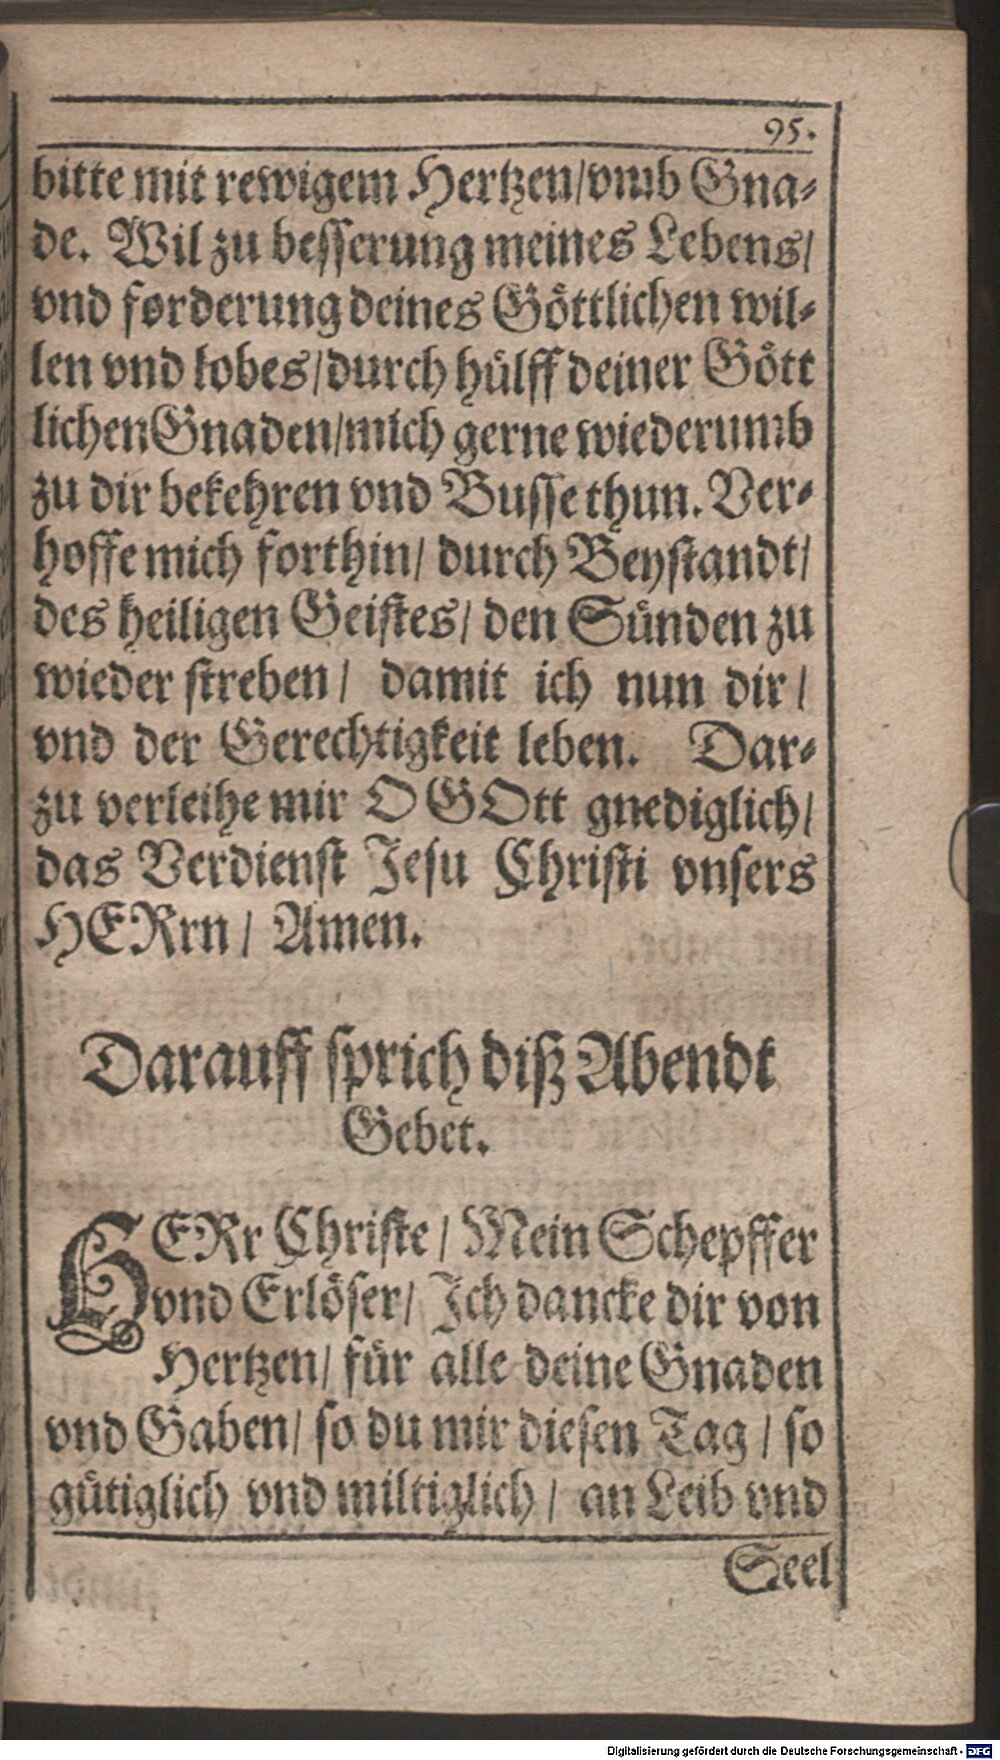 95.
bitte mit rewigem Hertzen/vmb Gna-
de. Wil zu besserung meines Lebens/
vnd forderung deines Göttlichen wil-
len vnd lobes/durch hülff deiner Gött
lichen Gnaden/mich gerne wiederumb
zu dir bekehren vnd Busse thun. Ver-
hoffe mich forthin/ durch Beystandt/
des heiligen Geistes/ den Sünden zu
wieder streben/ damit ich nun dir/
vnd der Gerechtigkeit leben. Dar-
zu verleihe mir O GOtt gnediglich/
das Verdienst Jesu Christi vnsers
HERrn/ Amen.
Darauff sprich diß Abendt
Gebet.
HERr Christe/ Mein Schepffer
vnd Erlöser/ Ich dancke dir von
Hertzen/ für alle deine Gnaden
vnd Gaben/ so du mir diesen Tag/ so
gütiglich vnd miltiglich/ an Leib vnd
Seel
Digitalisierung gefördert durch die Deutsche Forschungsgemeinschaft - DFG